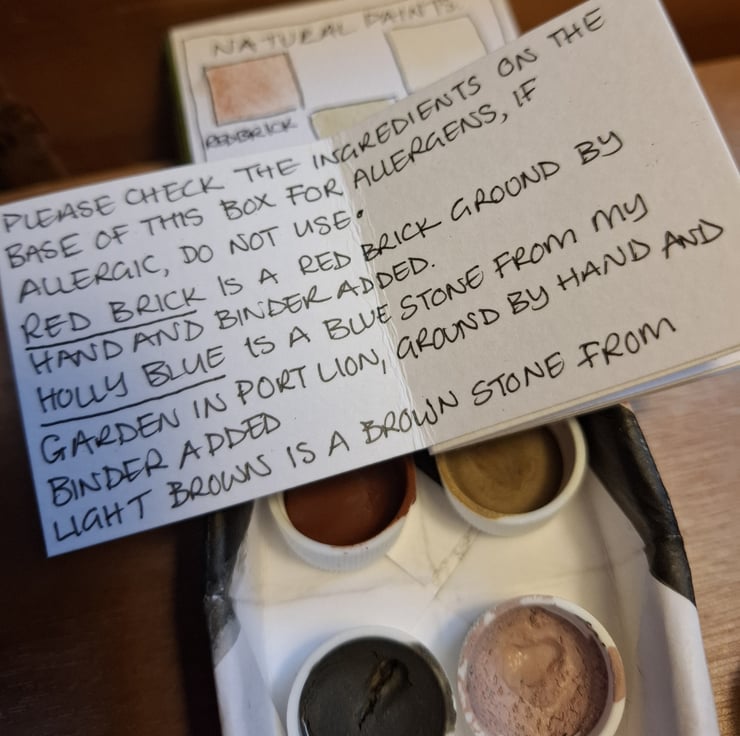 NATURAL PAINTS
RED BRICK
PLEASE CHECK THE INGREDIENTS ON THE
BASE OF THIS BOX FOR ALLERGENS, IF
ALLERGIC, DO NOT USE.
RED BRICK IS A RED BRICK GROUND BY
HAND AND BINDER ADDED.
HOLLY BLUE IS A BLUE STONE FROM MY
GARDEN IN PORT LION, GROUND BY HAND AND
BINDER ADDED
LIGHT BROWN IS A BROWN STONE FROM